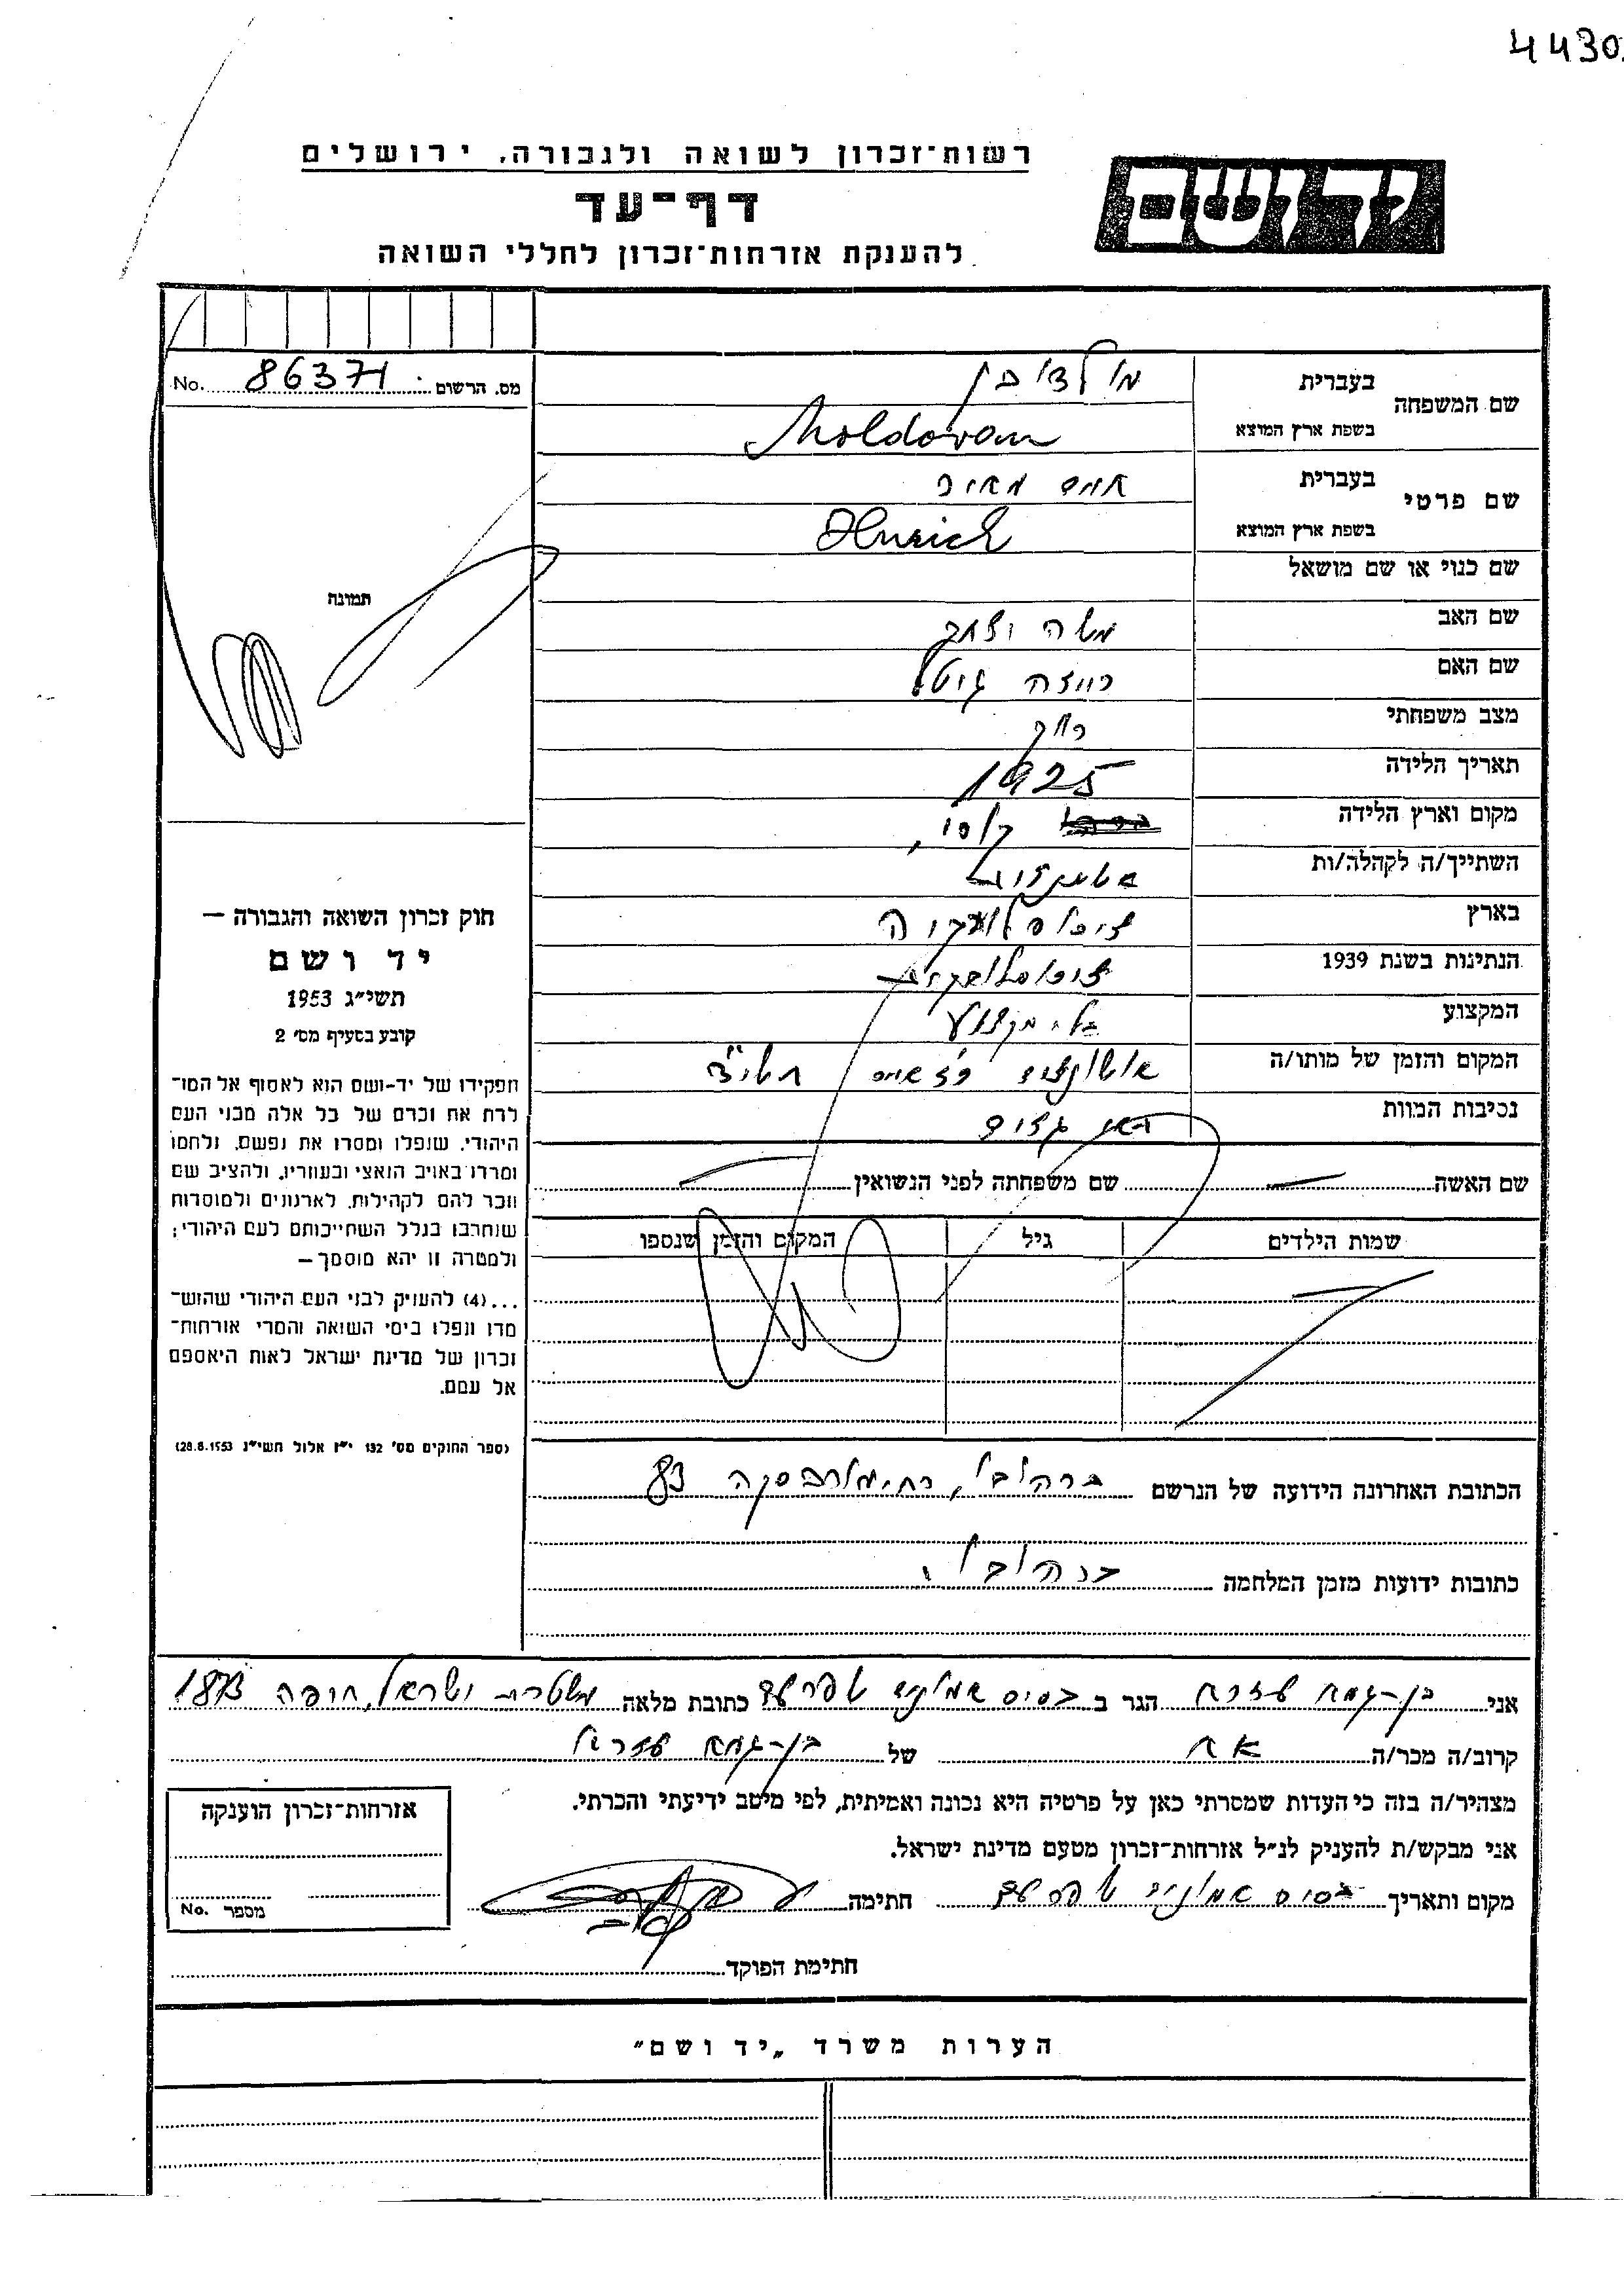 4430
רשות־זכרון לשואה ולגבורה, ירושלים
יד ושם
דף־עד
להענקת אזרחות־זכרון לחללי השואה
No. 86371 מס. הרשום
שם המשפחה
בעברית
בשפת ארץ המוצא Moldovan
שם פרטי
בעברית מאיר
בשפת ארץ המוצא Henrich
שם כנוי או שם מושאל
שם האב משה יצחק
שם האם רייזה גיטל
מצב משפחתי רווק
תאריך הלידה 1925
מקום וארץ הלידה
השתייך/ה לקהלה/ות
בארץ צ'כוסלובקיה
הנתינות בשנת 1939 צ'כוסלובקית
המקצוע בלי מקצוע
המקום והזמן של מותו/ה אושוויץ תש"ד
נסיבות המוות תאי גזים
שם האשה — שם משפחתה לפני הנשואין —
שמות הילדים גיל המקום והזמן שנספו
—
תמונה
חוק זכרון השואה והגבורה —
יד ושם
תשי״ג 1953
קובע בסעיף מס׳ 2
תפקידו של יד־ושם הוא לאסוף אל המו־
לדת את זכרם של כל אלה מבני העם
היהודי, שנפלו ומסרו את נפשם, נלחמו
ומרדו באויב הנאצי ובעוזריו, ולהציב שם
וזכר להם לקהילות, לארגונים ולמוסדות
שנחרבו בגלל השתייכותם לעם היהודי;
ולמטרה זו יהא מוסמך —
...(4) להעניק לבני העם היהודי שהוש־
מדו ונפלו בימי השואה והמרי אזרחות־
זכרון של מדינת ישראל לאות היאספם
אל עמם.
(ספר החוקים מס׳ 132 י״ז אלול תשי״ג 28.8.1953)
הכתובת האחרונה הידועה של הנרשם 83
כתובות ידועות מזמן המלחמה
אני הגר ב בסיס כתובת מלאה משטרת ישראל, חיפה 1873
קרוב/ה מכר/ה אח של
מצהיר/ה בזה כי העדות שמסרתי כאן על פרטיה היא נכונה ואמיתית, לפי מיטב ידיעתי והכרתי.
אני מבקש/ת להעניק לנ״ל אזרחות־זכרון מטעם מדינת ישראל.
מקום ותאריך בסיס חתימה
חתימת הפוקד
אזרחות־זכרון הוענקה
No. מספר
הערות משרד „יד ושם״